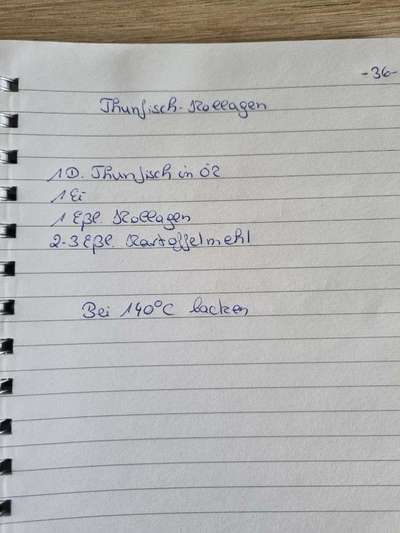 -36-
Thunfisch-Kollagen
1 D. Thunfisch in Öl
1 Ei
1 Eßl. Kollagen
2-3 Eßl. Kartoffelmehl
Bei 140°C backen